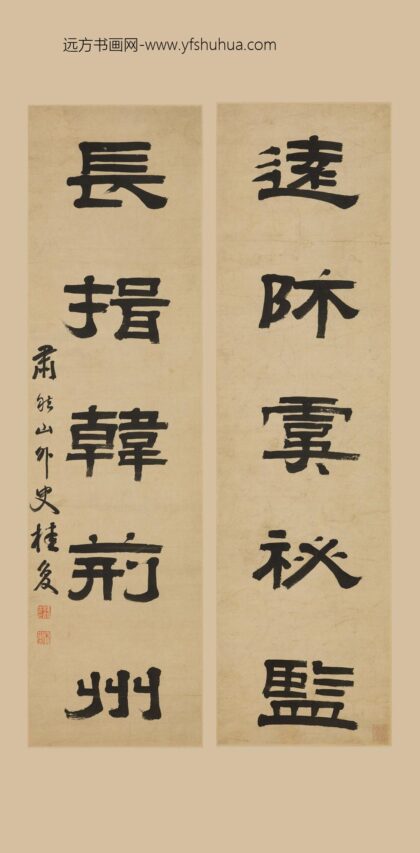 远方书画网-www.yfshuhua.com
遠師虞祕監
長揖韓荊州
肅然山外史桂馥